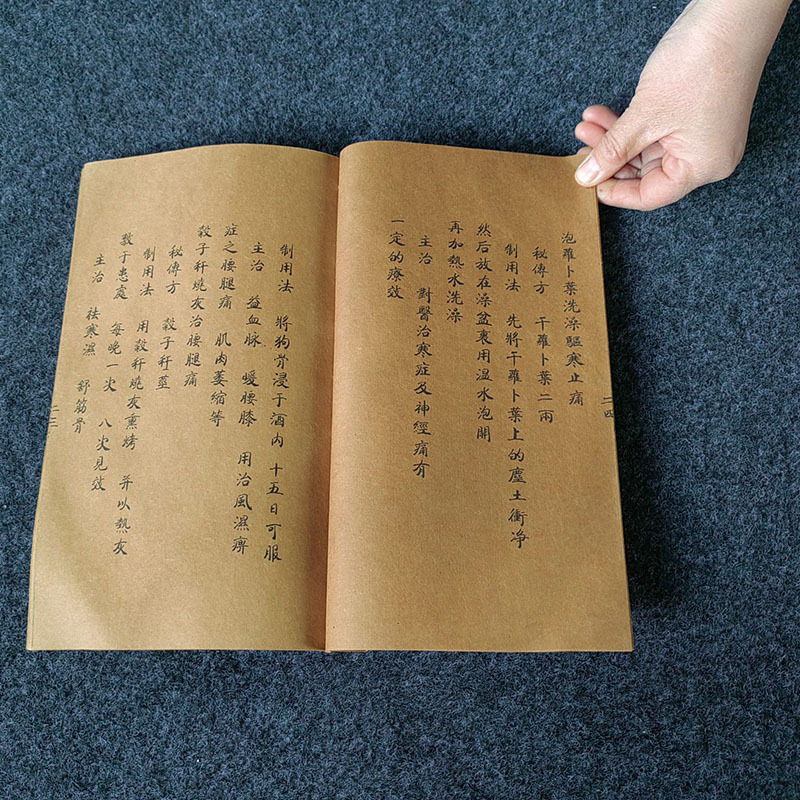 制用法 將狗骨浸于酒内 十五日可服
主治 益血脉 暖腰膝 用治風濕痹
症之腰腿痛 肌肉萎縮等
穀子秆燒灰治腰腿痛
秘傳方 穀子秆莖
制用法 用穀秆燒灰熏烤 并以熱灰
敷于患處 每晚一次 八次見效
主治 祛寒濕 舒筋骨
二三
泡蘿卜葉洗澡驅寒止痛
秘傳方 干蘿卜葉二兩
制用法 先將干蘿卜葉上的塵土衝净
然后放在澡盆裏用温水泡開
再加熱水洗澡
主治 對醫治寒症及神經痛有
一定的療效
二四